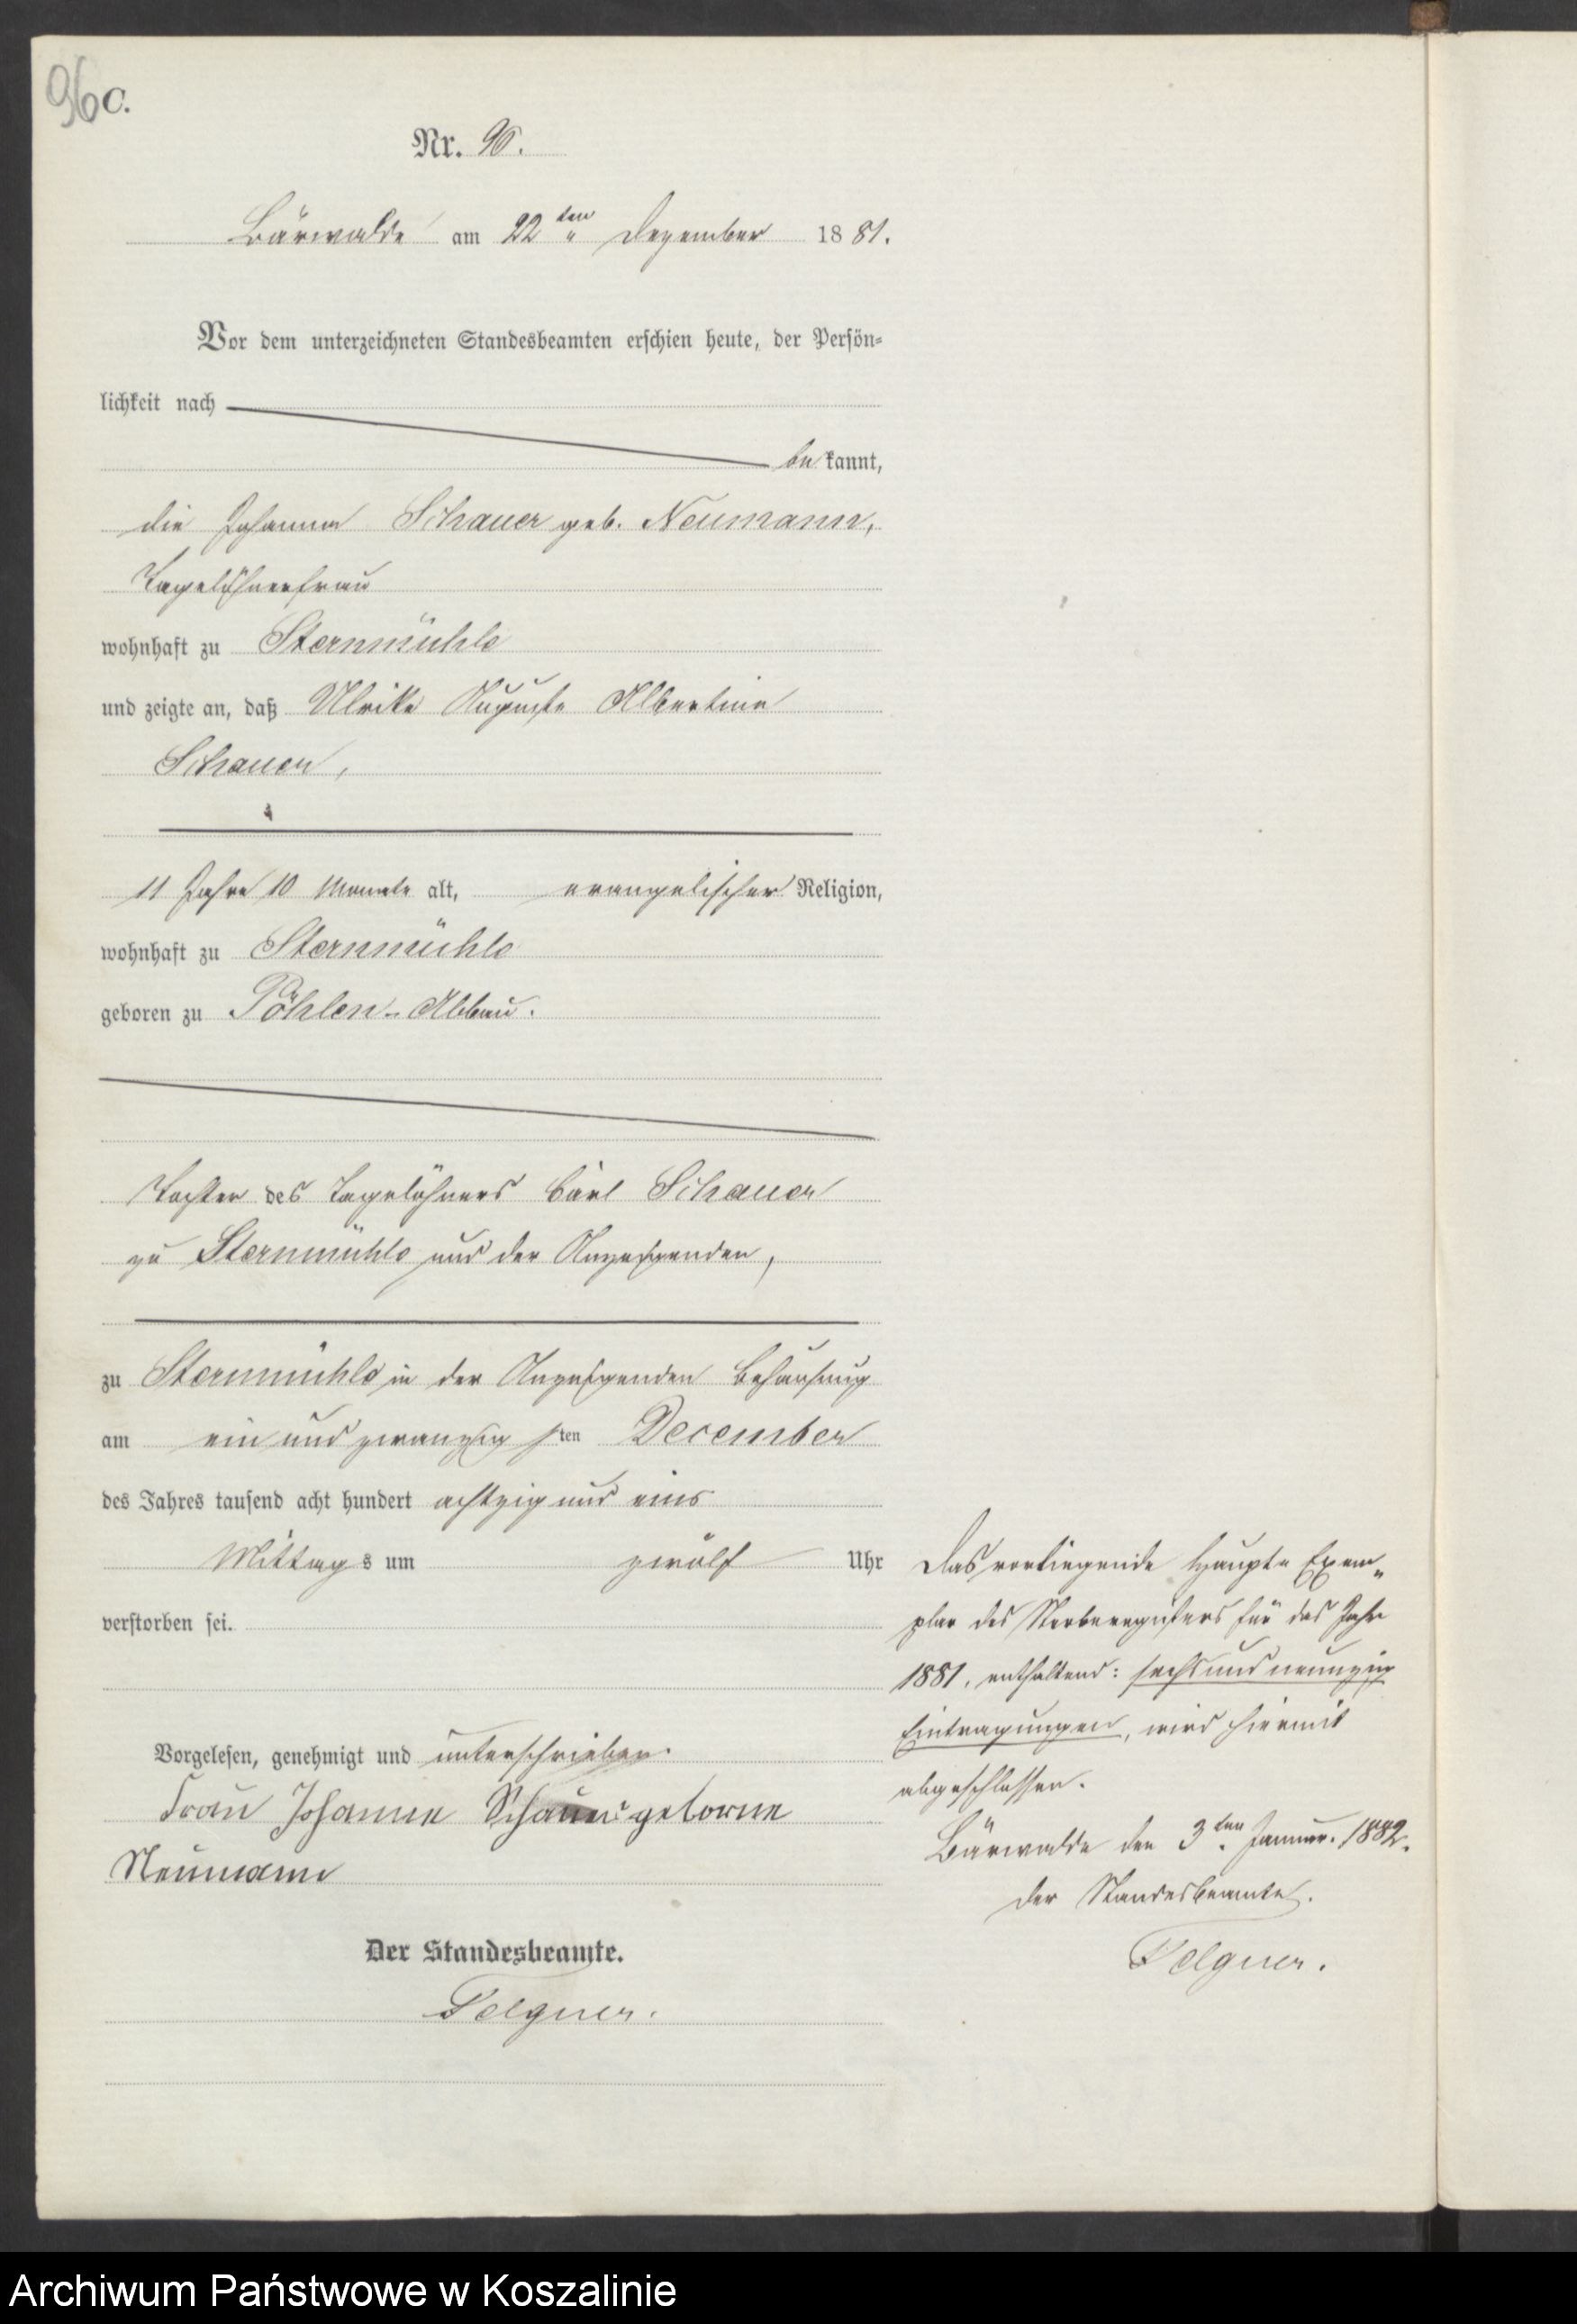 96 c.
Nr. 96.
Bärwalde am 22ten Dezember 1881.
Vor dem unterzeichneten Standesbeamten erschien heute, der Persön=
lichkeit nach
bekannt,
die Johanna Schauer geb. Neumann,
Tagelöhnerfrau
wohnhaft zu Sternmühle
und zeigte an, daß Ulrike Auguste Albertine
Schauer,
11 Jahre 10 Monate alt, evangelischer Religion,
wohnhaft zu Sternmühle
geboren zu Pöhlen-Abbau.
Tochter des Tagelöhners Carl Schauer
zu Sternmühle und der Anzeigenden,
zu Sternmühle in der Anzeigenden Behausung
am ein und zwanzigsten December
des Jahres tausend acht hundert achtzig und eins
Mittags um zwölf Uhr
verstorben sei.
Vorgelesen, genehmigt und unterschrieben.
Frau Johanne Schauer geborne
Neumann
Der Standesbeamte.
Felgner.
Das vorliegende Haupt- Exem-
plar des Sterberegisters für das Jahr
1881, enthaltend: sechs und neunzig
Eintragungen, wird hiermit
abgeschlossen.
Bärwalde den 3ten Januar 1882.
Der Standesbeamte.
Felgner.
Archiwum Państwowe w Koszalinie